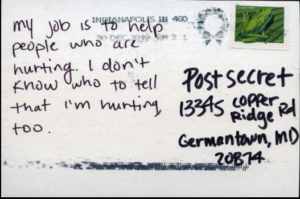 INDIANAPOLIS IN 460
30 DEC 2019 PM 2 L
my job is to help
people who are
hurting. I don't
know who to tell
that I'm hurting,
too.
Post Secret
13345 Copper
Ridge Rd
Germantown, MD
20874